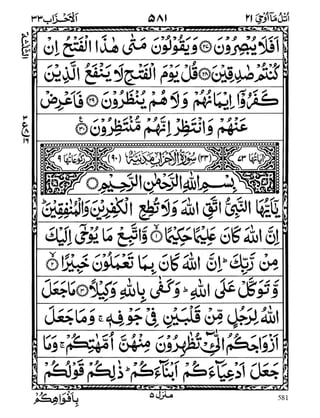 اتل ما اوحی ۲۱ ۵۸۱ الاحزاب ۳۳
اَفَلَا يُبْصِرُوْنَ ﴿۲۷﴾ وَيَقُوْلُوْنَ مَتٰى هٰذَا الْفَتْحُ اِنْ
كُنْتُمْ صٰدِقِيْنَ ﴿۲۸﴾ قُلْ يَوْمَ الْفَتْحِ لَا يَنْفَعُ الَّذِيْنَ
كَفَرُوْٓا اِيْمَانُهُمْ وَلَا هُمْ يُنْظَرُوْنَ ﴿۲۹﴾ فَاَعْرِضْ
عَنْهُمْ وَانْتَظِرْ اِنَّهُمْ مُّنْتَظِرُوْنَ ﴿۳۰﴾
اٰیاتها ۷۳ (۳۳) سُوْرَةُ الْاَحْزَابِ مَدَنِيَّةٌ (۹۰) رکوعاتها ۹
بِسْمِ اللّٰهِ الرَّحْمٰنِ الرَّحِيْمِ
يٰٓاَيُّهَا النَّبِيُّ اتَّقِ اللّٰهَ وَلَا تُطِعِ الْكٰفِرِيْنَ وَالْمُنٰفِقِيْنَ ؕ
اِنَّ اللّٰهَ كَانَ عَلِيْمًا حَكِيْمًا ﴿۱﴾ وَّاتَّبِعْ مَا يُوْحٰٓى اِلَيْكَ
مِنْ رَّبِّكَ ؕ اِنَّ اللّٰهَ كَانَ بِمَا تَعْمَلُوْنَ خَبِيْرًا ﴿۲﴾
وَّتَوَكَّلْ عَلَى اللّٰهِ ؕ وَكَفٰى بِاللّٰهِ وَكِيْلًا ﴿۳﴾ مَا جَعَلَ
اللّٰهُ لِرَجُلٍ مِّنْ قَلْبَيْنِ فِيْ جَوْفِهٖ ۚ وَمَا جَعَلَ
اَزْوَاجَكُمُ الّٰٓـِٔيْ تُظٰهِرُوْنَ مِنْهُنَّ اُمَّهٰتِكُمْ ۚ وَمَا
جَعَلَ اَدْعِيَآءَكُمْ اَبْنَآءَكُمْ ؕ ذٰلِكُمْ قَوْلُكُمْ
بِاَفْوَاهِكُمْ منزل ۵ 581